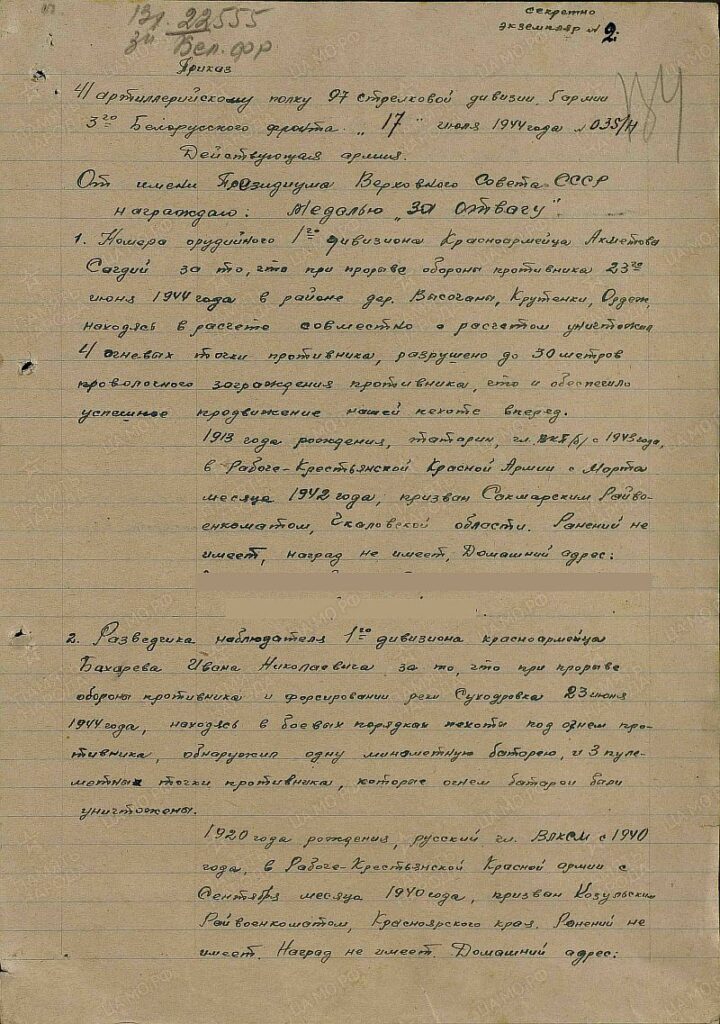 вх. 22555
3й Бел. фр
секретно
экземпляр № 2.
Приказ
41 артиллерийскому полку 97 стрелковой дивизии, 5 армии
3го Белорусского фронта. „17" июля 1944 года № 035/Н
Действующая армия.
От имени Президиума Верховного Совета СССР
награждаю: Медалью „За отвагу".
1. Номера орудийного 1го дивизиона Красноармейца Ахметова
Сагдий за то, что при прорыве обороны противника 23го
июня 1944 года в районе дер. Высочаны, Крутенки, Ордеж,
находясь в расчете совместно с расчетом уничтожил
4 огневых точки противника, разрушено до 30 метров
проволочного заграждения противника, что и обеспечило
успешное продвижение нашей пехоте вперед.
1913 года рождения, татарин, чл. ВКП/б/ с 1943 года,
в Рабоче-Крестьянской Красной Армии с Марта
месяца 1942 года, призван Сакмарским Райво-
енкоматом, Чкаловской области. Ранений не
имеет, наград не имеет, Домашний адрес:
2. Разведчика наблюдателя 1го дивизиона красноармейца
Бахарева Ивана Николаевича за то, что при прорыве
обороны противника и форсировании реки Суходровка 23 июня
1944 года, находясь в боевых порядках пехоты под огнем про-
тивника, обнаружил одну минометную батарею, и 3 пуле-
метных точки противника, которые огнем батареи были
уничтожены.
1920 года рождения, русский чл. ВЛКСМ с 1940
года, в Рабоче-Крестьянской Красной армии с
Сентября месяца 1940 года, призван Козульским
Райвоенкоматом, Красноярского края. Ранений не
имеет. Наград не имеет. Домашний адрес: